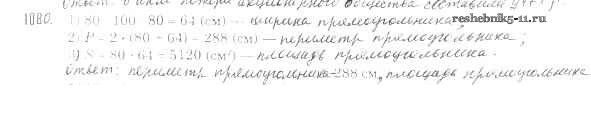 Ответ: общества составили
1080. 1) 80 : 100 · 80 = 64 (см) — ширина прямоугольника;
reshebnik5-11.ru
2) P = 2 · (80 + 64) = 288 (см) — периметр прямоугольника;
3) S = 80 · 64 = 5120 (см²) — площадь прямоугольника.
Ответ: периметр прямоугольника-288 см, площадь прямоугольника